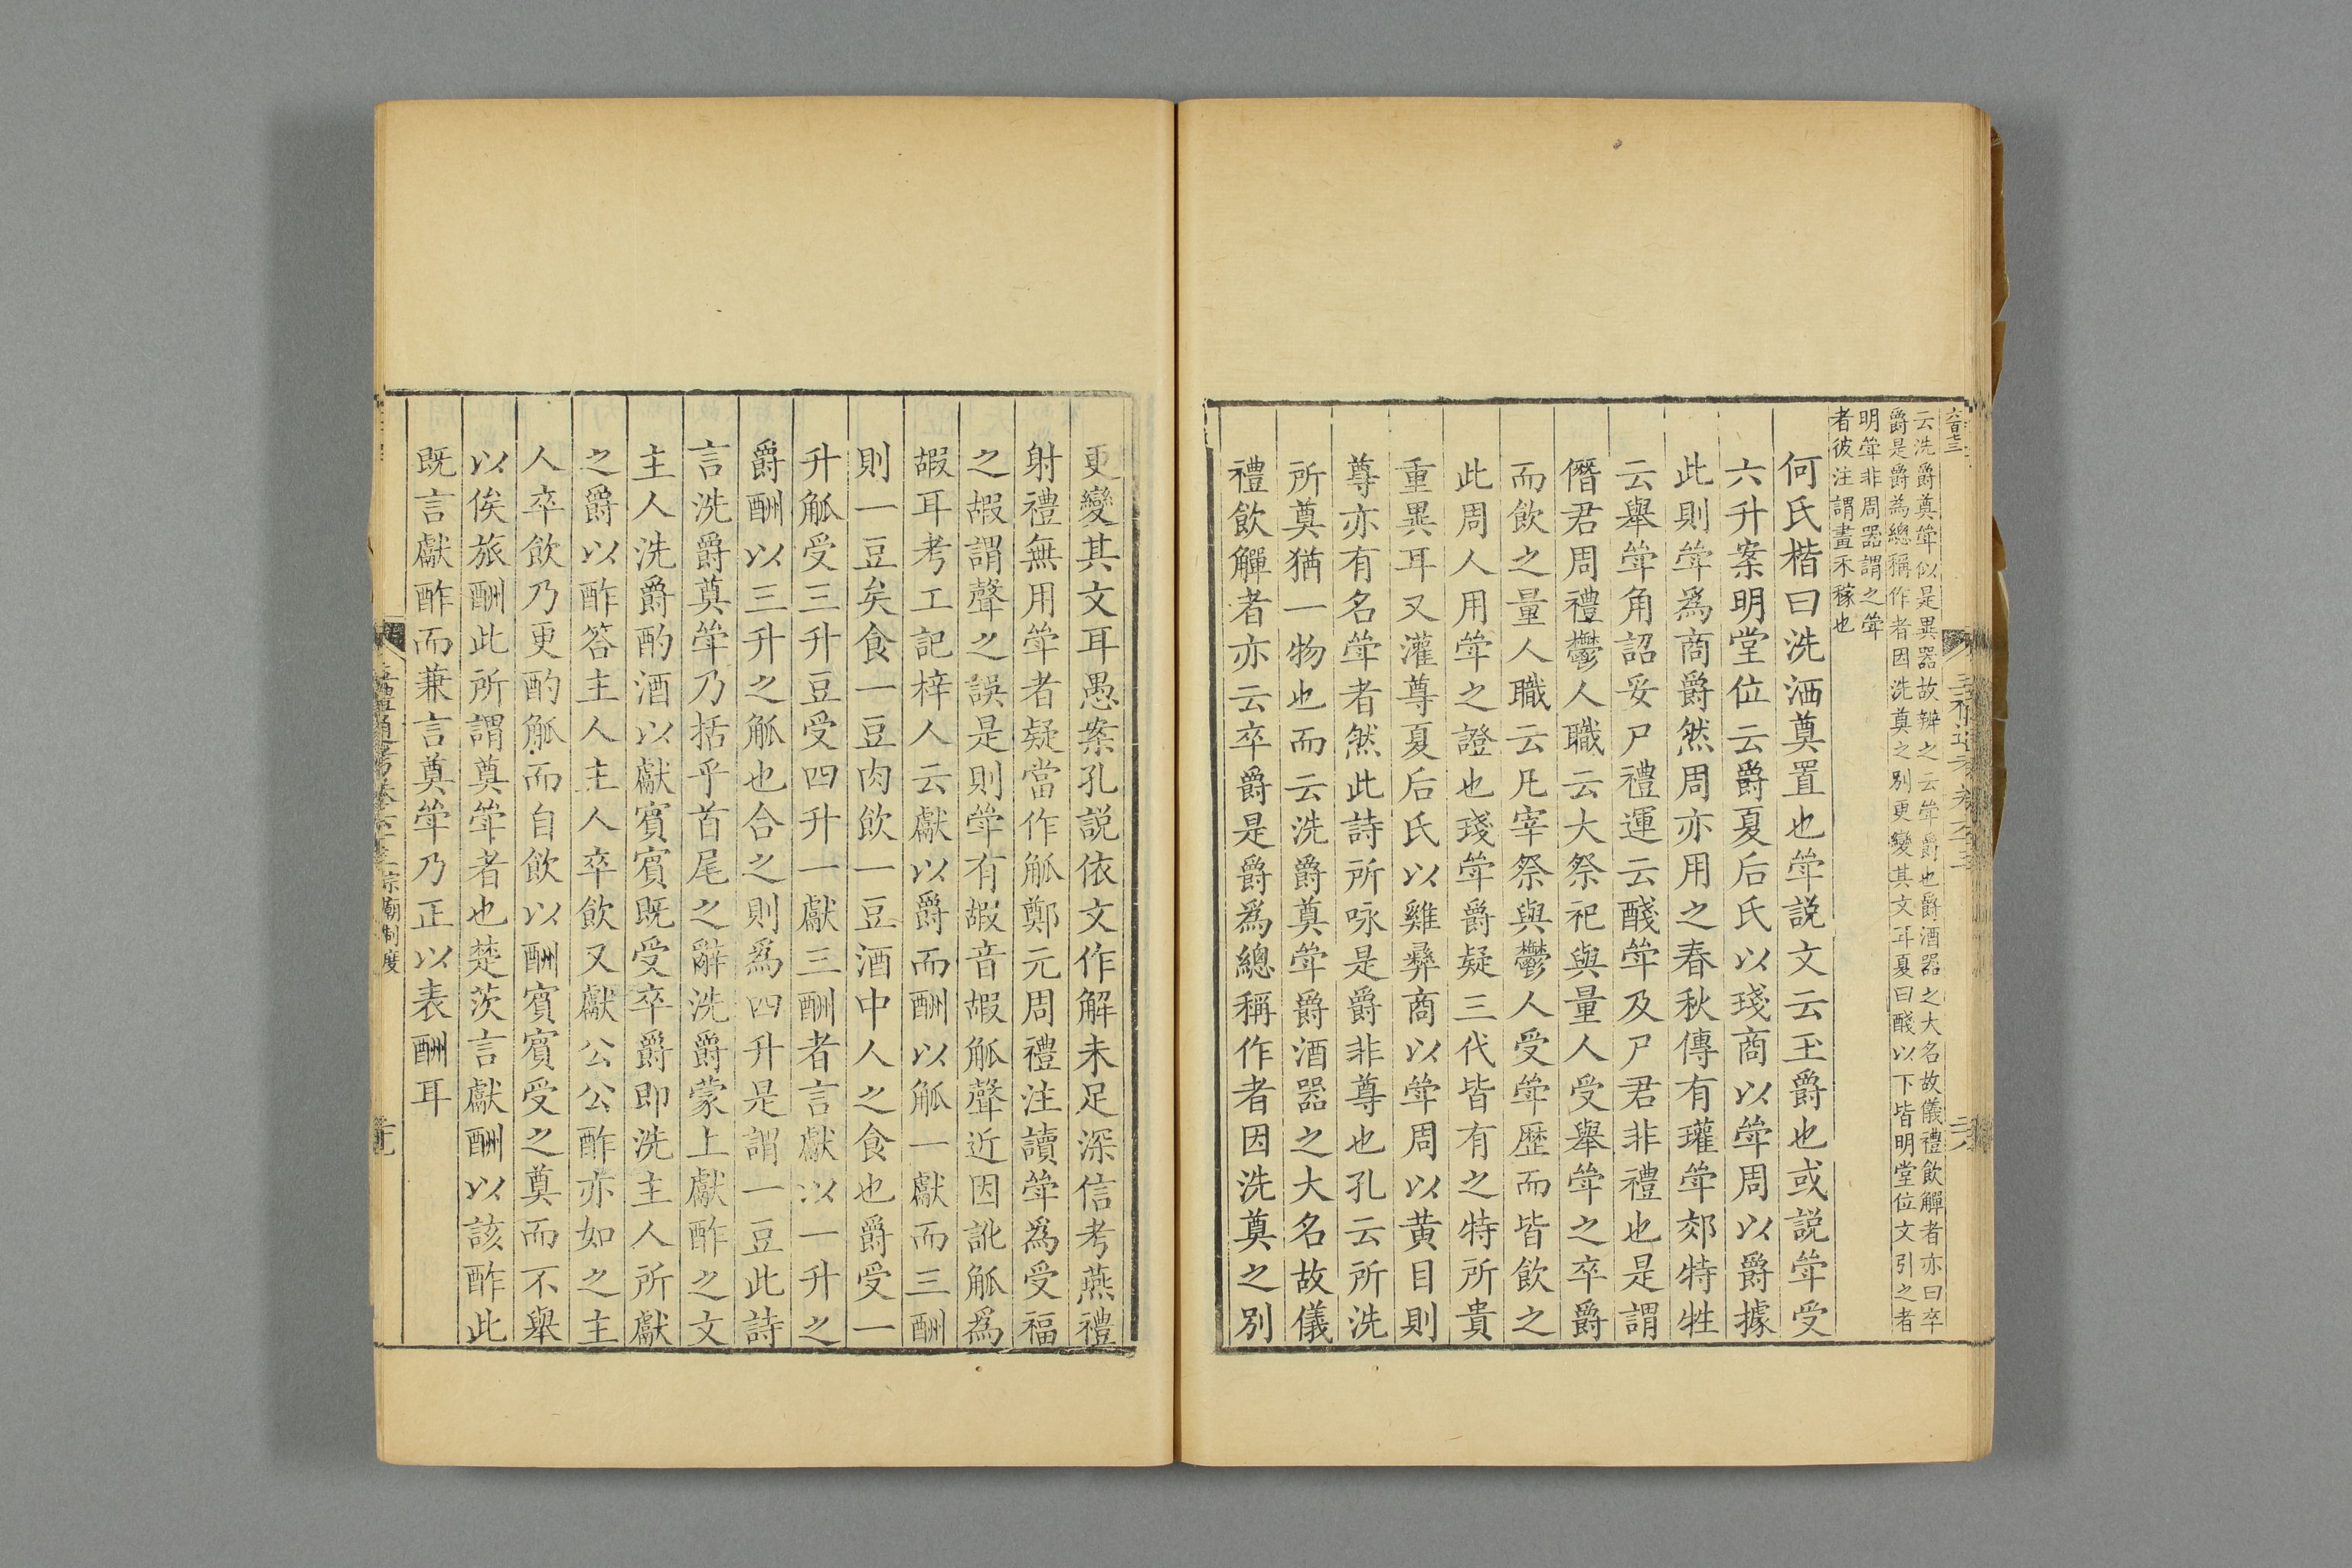 云洗爵奠斝似是異器故辨之云斝爵也爵酒器之大名故儀禮飲觶者亦曰卒
爵是爵為總稱作者因洗奠之別更變其文耳夏曰醆以下皆明堂位文引之者
明斝非周器謂之斝
者彼注謂畫禾稼也
何氏楷曰洗洒奠置也斝説文云玉爵也或説斝受
六升案明堂位云爵夏后氏以琖商以斝周以爵據
此則斝爲商爵然周亦用之春秋傳有瓘斝郊特牲
云舉斝角詔妥尸禮運云醆斝及尸君非禮也是謂
僭君周禮鬱人職云大祭祀與量人受舉斝之卒爵
而飲之量人職云凡宰祭與鬱人受斝歴而皆飲之
此周人用斝之證也琖斝爵疑三代皆有之特所貴
重異耳又灌尊夏后氏以雞彝商以斝周以黄目則
尊亦有名斝者然此詩所咏是爵非尊也孔云所洗
所奠猶一物也而云洗爵奠斝爵酒器之大名故儀
禮飲觶者亦云卒爵是爵爲總稱作者因洗奠之別
更變其文耳愚案孔説依文作解未足深信考燕禮
射禮無用斝者疑當作觚鄭元周禮注讀斝爲受福
之嘏謂聲之誤是則斝有嘏音嘏觚聲近因訛觚爲
嘏耳考工記梓人云獻以爵而酬以觚一獻而三酬
則一豆矣食一豆肉飲一豆酒中人之食也爵受一
升觚受三升豆受四升一獻三酬者言獻以一升之
爵酬以三升之觚也合之則爲四升是謂一豆此詩
言洗爵奠斝乃括乎首尾之辭洗爵蒙上獻酢之文
主人洗爵酌酒以獻賓賓既受卒爵即洗主人所獻
之爵以酢答主人主人卒飲又獻公公酢亦如之主
人卒飲乃更酌觚而自飲以酬賓賓受之奠而不舉
以俟旅酬此所謂奠斝者也楚茨言獻酬以該酢此
既言獻酢而兼言奠斝乃正以表酬耳
宗廟制度